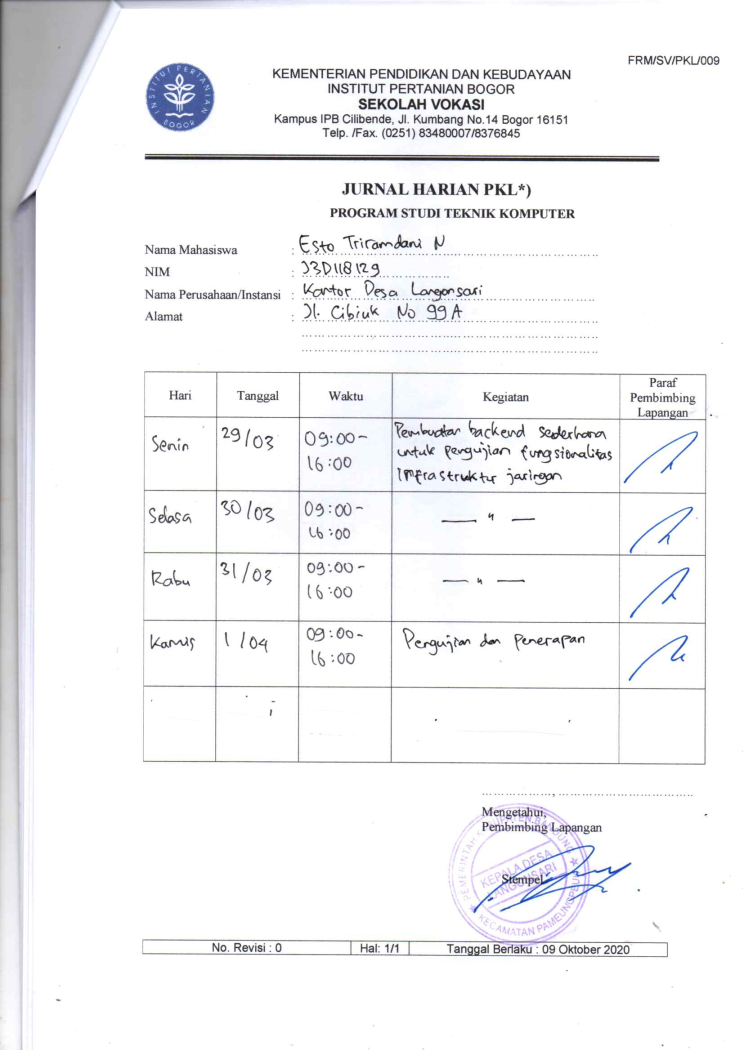 FRM/SV/PKL/009
INSTITUT PERTANIAN
BOGOR
KEMENTERIAN PENDIDIKAN DAN KEBUDAYAAN
INSTITUT PERTANIAN BOGOR
SEKOLAH VOKASI
Kampus IPB Cilibende, Jl. Kumbang No.14 Bogor 16151
Telp. /Fax. (0251) 83480007/8376845
JURNAL HARIAN PKL*)
PROGRAM STUDI TEKNIK KOMPUTER
Nama Mahasiswa : Esto Triramdani N
NIM : J3D118129
Nama Perusahaan/Instansi : Kantor Desa Langonsari
Alamat : Jl. Cibiuk No 99A
Hari Tanggal Waktu Kegiatan Paraf
Pembimbing
Lapangan
Senin 29/03 09:00-
16:00
Pembuatan backend sederhana
untuk pengujian fungsionalitas
Infrastruktur jaringan
Selasa 30/03 09:00-
16:00
— " —
Rabu 31/03 09:00-
16:00
— " —
Kamis 1/04 09:00-
16:00
Pengujian dan Penerapan
Mengetahui,
Pembimbing Lapangan
Stempel
KEPALA DESA
KECAMATAN PAMEUNGPEUK
No. Revisi : 0 Hal: 1/1 Tanggal Berlaku : 09 Oktober 2020